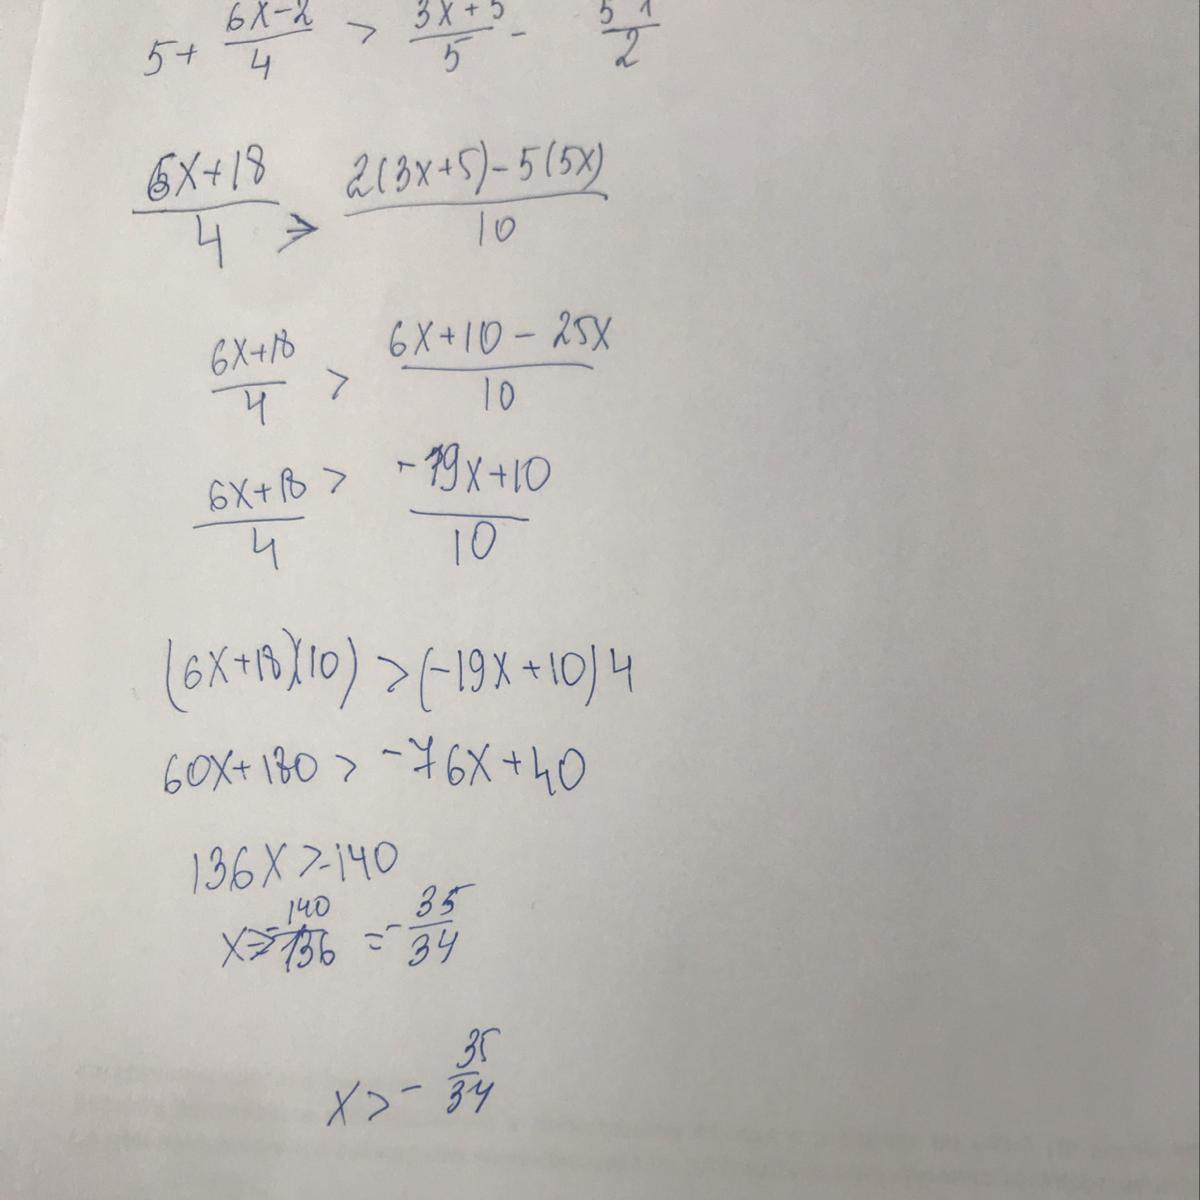 5+ (6x-2)/4 > (3x+5)/5 - 5x/2
(6x+18)/4 > (2(3x+5)-5(5x))/10
(6x+18)/4 > (6x+10-25x)/10
(6x+18)/4 > (-19x+10)/10
(6x+18)(10) > (-19x+10)4
60x+180 > -76x+40
136x>-140
x>-140/136 = -35/34
x>-35/34